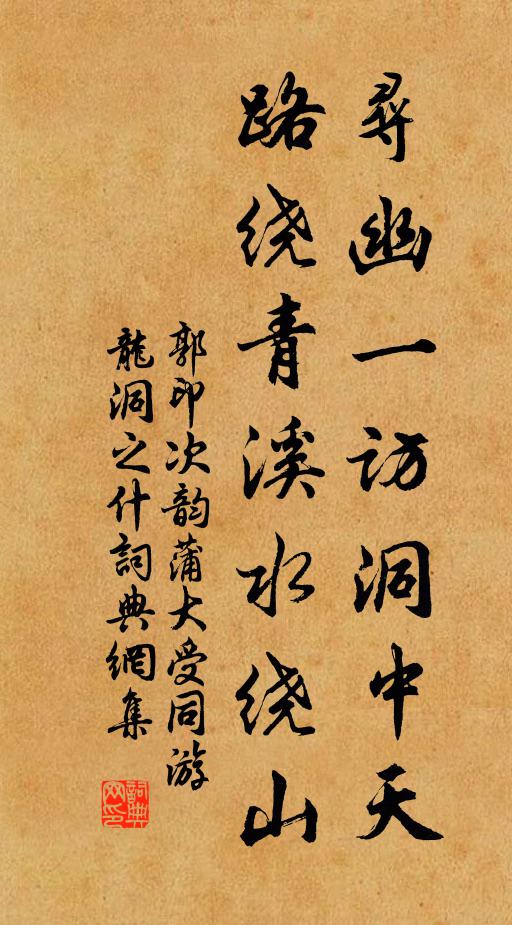 尋幽一访洞中天
路绕青溪水绕山
郭印次韵蒲大受同游
龍洞之什詞典網集
詞典网印